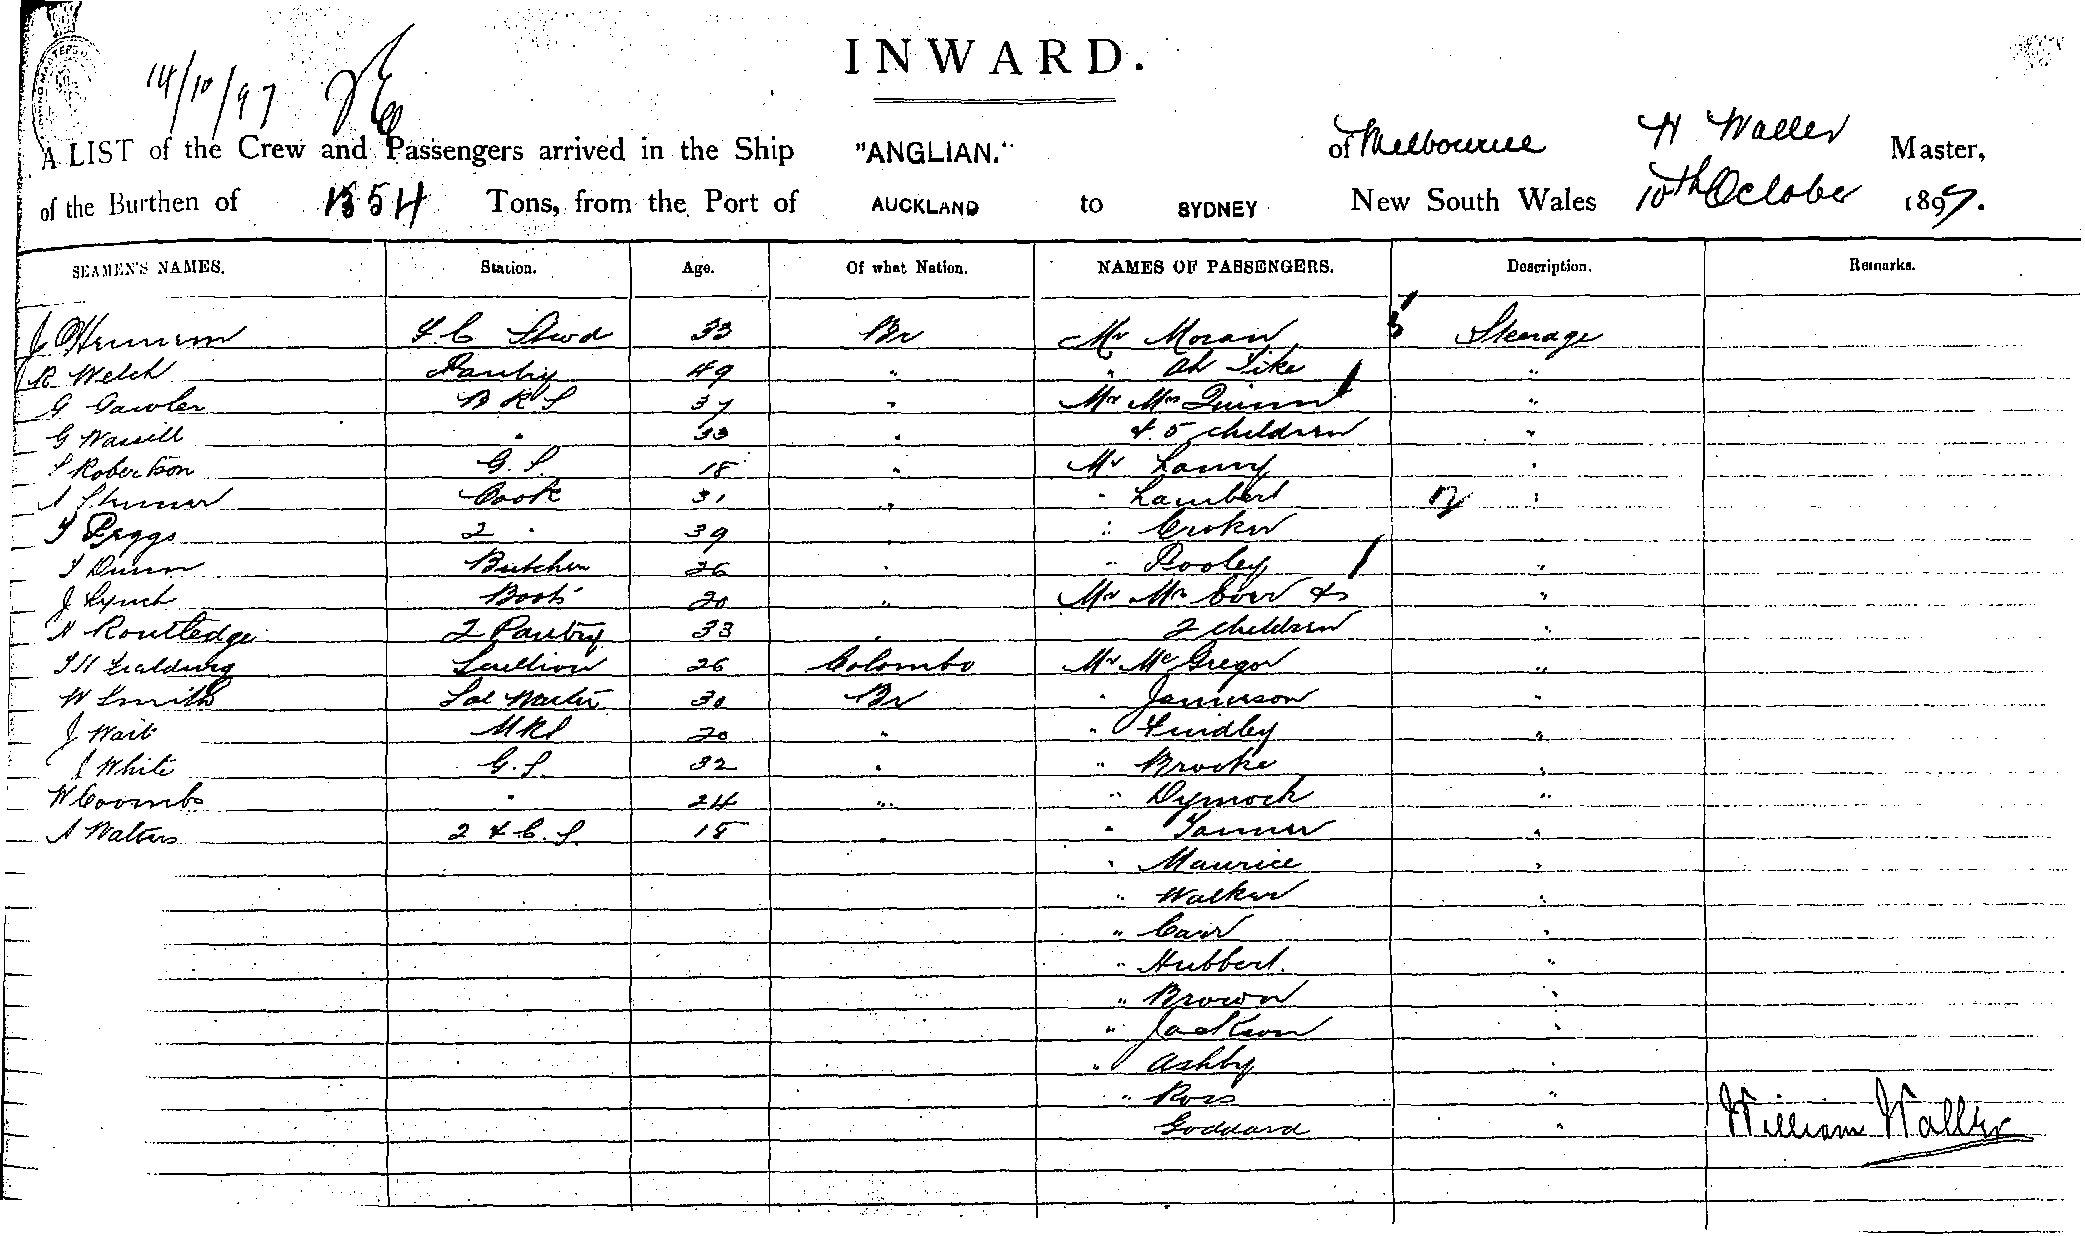 14/10/97
INWARD.
A LIST of the Crew and Passengers arrived in the Ship "ANGLIAN." of Melbourne W Waller Master,
of the Burthen of Tons, from the Port of AUCKLAND to SYDNEY New South Wales 10th October 1897.
SEAMEN'S NAMES. Station. Age. Of what Nation. NAMES OF PASSENGERS. Description. Remarks.
J 33 Br Mr Moran Steerage
R Welch Pantry 49 " " Ah "
G Gawler B R S 37 " Mr Mrs Quinn "
G " 33 " & 5 children "
Robertson G. S. 18 " Mr "
A Cook 31 " " Lambert "
T Beggs 2 " 39 " " Croker "
T Dunn Butcher 26 " " Pooley "
J Lynch Boots 20 " Mr Mrs &
H Routledge 2 Pantry 33 " 2 children "
Scullion 26 Colombo Mr McGregor "
W Smith Sal Waiter 30 Br " Jamerson "
J Wait M R S 20 " " Findley "
J White G. S. 32 " " Brooke "
W Coombs " 24 " " Dymock "
A Walters 18 " " Tanner "
" Maurice "
" Walker "
" Carr "
" Hubbert. "
" Brown "
" Jackson "
" Ashby "
" Ross "
Goddard "
William Waller